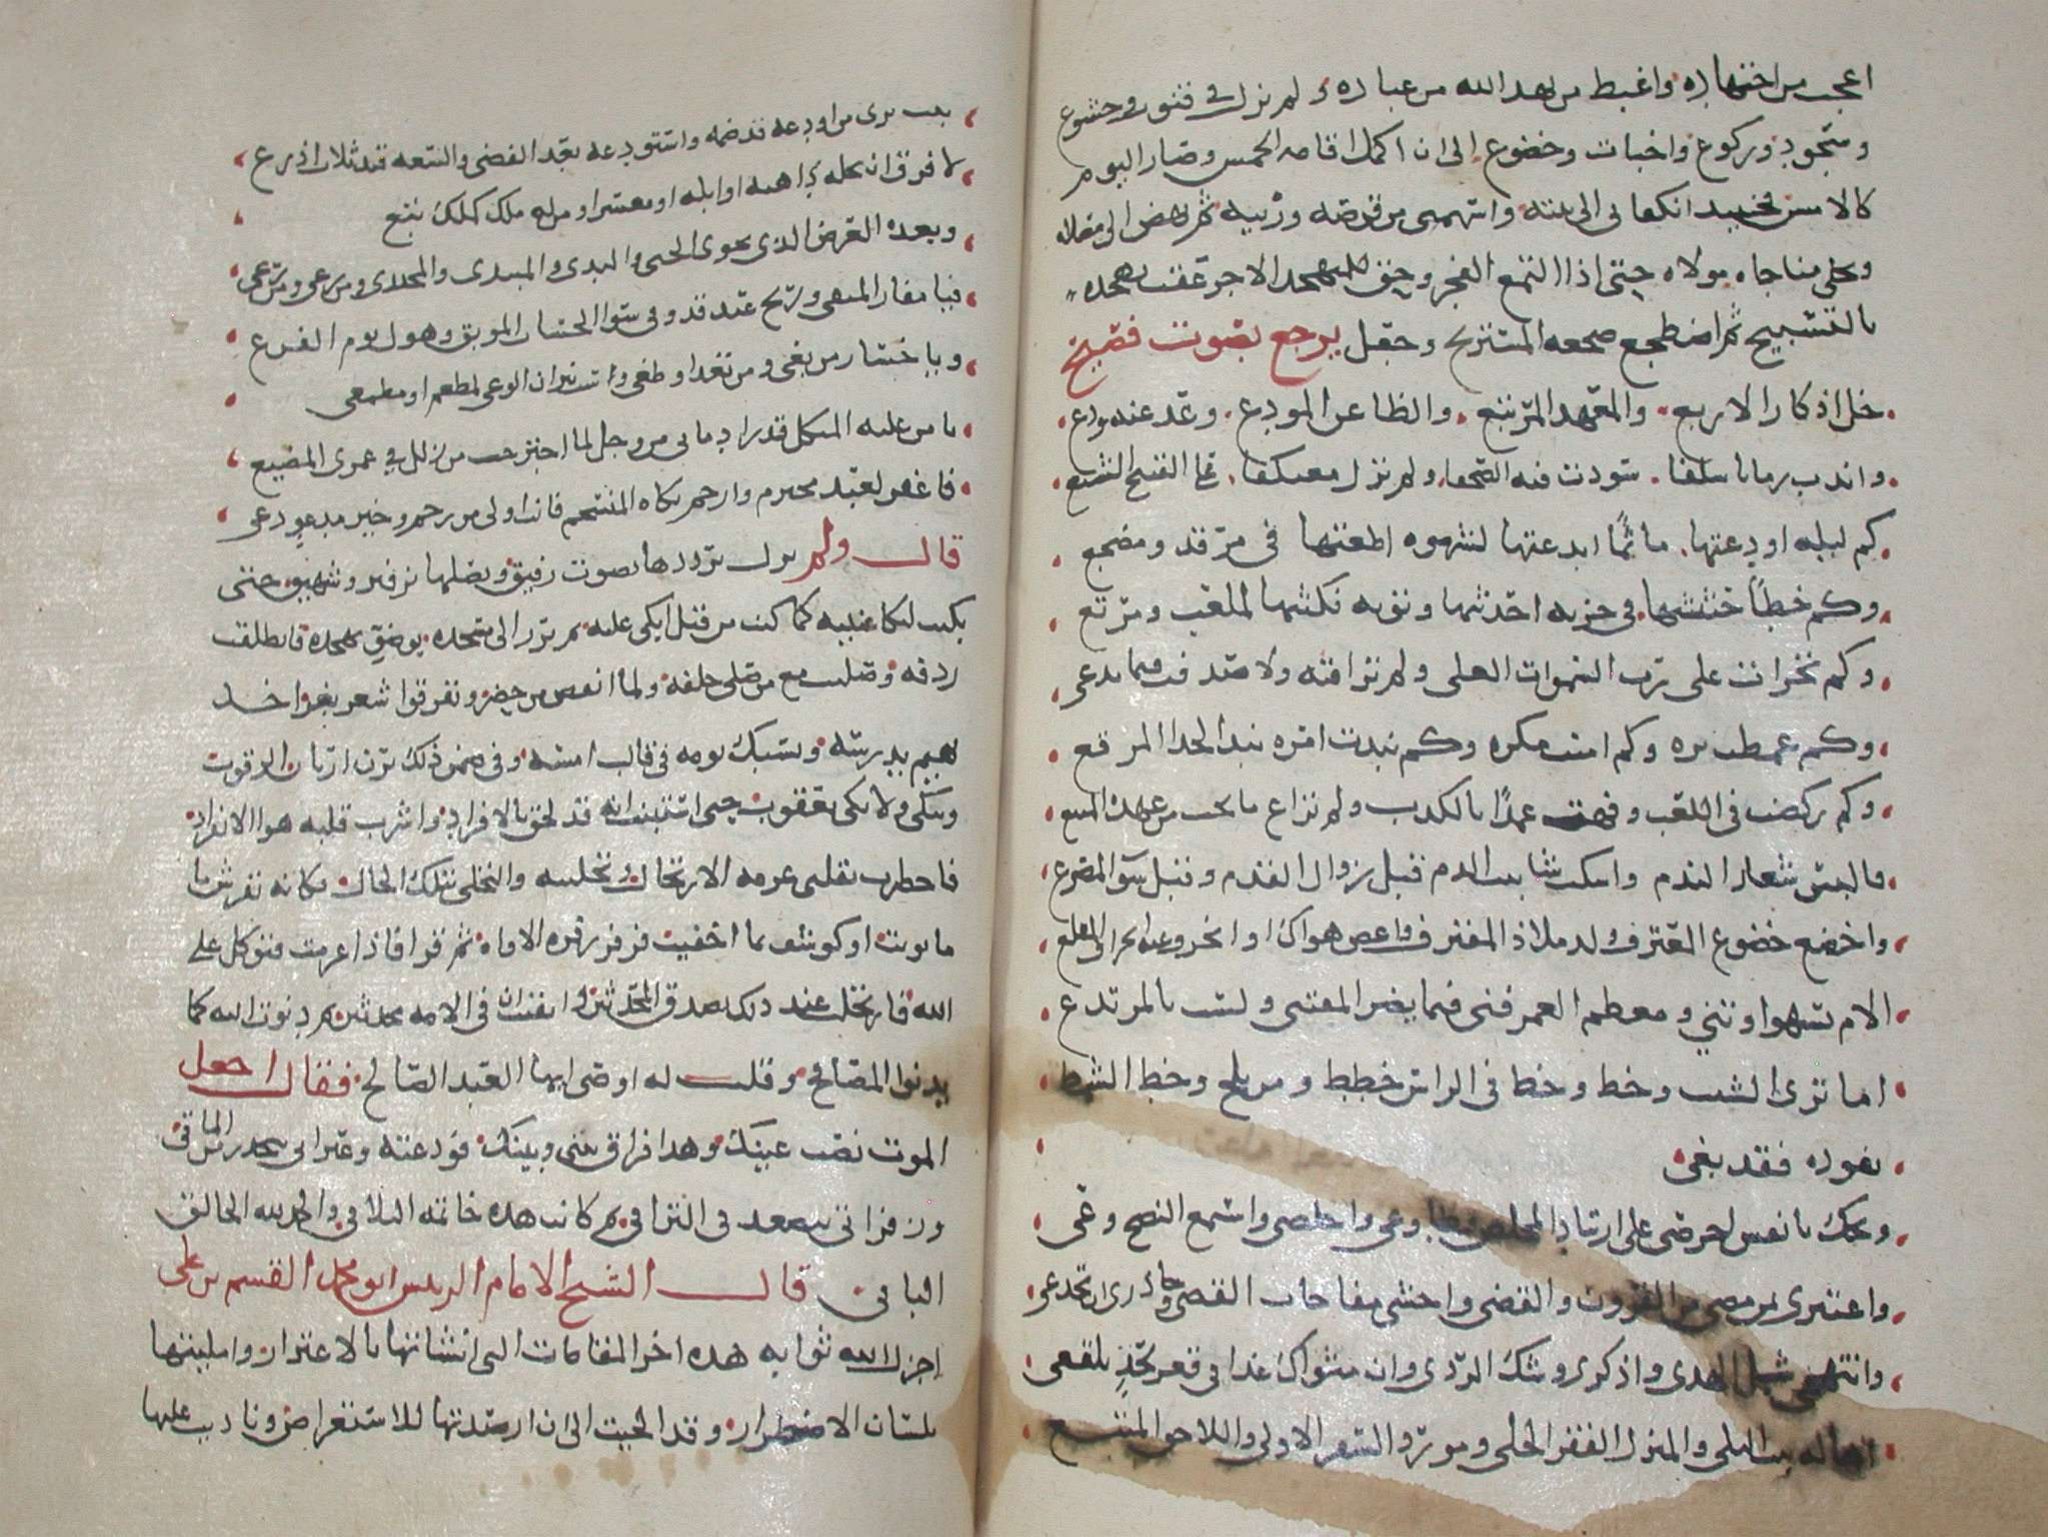 اعجب من اجتهاده واغبط من يهد الله من عباده ولم يزل في قنوت وخشوع
وسجود وركوع واخبات وخضوع الى ان اكمل اقامه الخمس وصار اليوم
كالامس فحينيد انكفا بي الى بيته واسهمني من قرصه وزيته ثم نهض الى مصلاه
وتخلى بمناجاه مولاه حتى اذا التمع الفجر وحق للمتهجد الاجر عقب تهجده
بالتسبيح ثم اضطجع ضجعه المستريح وجعل يرجع بصوت فصيح
خل اذكار الاربع والمعهد المرتبع والظاعن المودع وعد عنه ودع
واندب زمانا سلفا سودت فيه الصحفا ولم تزل معتكفا على القبيح الشنع
كم ليله اودعتها ماثما ابدعتها لشهوه اطعتها في مرقد ومضجع
وكم خطا حثثتها في خزيه احدثتها وتوبه نكثتها لملعب ومرتع
وكم تجرات على رب السموات العلى ولم تراقبه ولا صدقت فيما تدعي
وكم غمصت بره وكم امنت مكره وكم نبذت امره نبذ الحذا المرقع
وكم ركضت في اللعب وفهت عمدا بالكذب ولم تراع ما يجب من عهده المتبع
فالبس شعار الندم واسكب شابيب الدم قبل زوال القدم وقبل سو المصرع
واخضع خضوع المعترف ولذ ملاذ المقترف واعص هواك وانحرف عنه انحراف المقلع
الام تسهو وتني ومعظم العمر فني فيما يضر المقتني ولست بالمرتدع
اما ترى الشيب وخط وخط في الراس خطط ومن يلح وخط الشمط
بفوده فقد نعي
ويحك يا نفس احرصي على ارتياد المخلص وطاوعي واخلصي واستمع النصح وعي
واعتبري بمن مضى من القرون وانقضى واخشي مفاجاه القضى وحاذري ان تخدعي
وانتهجي سبل الهدى واذكري وشك الردى وان مثواك غدا في قعر لحد بلقع
اها له بيت البلى والمنزل القفر الخلى ومورد السفر الاولى واللاحق المتبع
بيت يرى من اودعه قد ضمه واستودعه بعد الفضى والسعه قيد ثلاث اذرع
لا فرق ان يحله داهيه او ابله او معسر او من له ملك كملك تبع
وبعده العرض الذي يحوي الحيي والبذي والمبتدي والمحتذي ومن رعى ومن رعي
فيا مفاز المتقي وربح عبد قد وقي سو الحساب الموبق وهول يوم الفزع
ويا خسار من بغى ومن تعدا وطغى وشب نيران الوغى لمطعم او مطمع
يا من عليه المتكل قد زاد ما بي من وجل لما اجترحت من زلل في عمري المضيع
فاغفر لعبد مجترم وارحم بكاه المنسجم فانت اولى من رحم وخير مدعو دعي
قال ولم يزل يرددها بصوت رقيق ويصلها بزفير وشهيق حتى
بكيت لبكا عينيه كما كنت من قبل ابكي عليه ثم برز الى مسجده بوضو تهجده فانطلقت
ردفه وصليت مع من صلى خلفه ولما انفض من حضر وتفرقوا شغر بغر اخذ
يهينم بدرسه ويسبك يومه في قالب امسه وفي ضمن ذلك يرن ارنان الرقوب
ويبكي ولا بكى يعقوب حتى استبنت انه قد لحق بالافراد واشرب قلبه هوا الانفراد
فاخطرت بقلبي عزمه الارتحال وتخليته والتخلي بتلك الحال فكانه تفرس ما
ما نويت او كوشف بما اخفيت فزفر زفره الاواه ثم قرا فاذا عزمت فتوكل على
الله فاسجلت عند ذلك بصدق المحدثين وايقنت ان في الامه محدثين ثم دنوت اليه كما
يدنوا المصافح وقلت له اوصني ايها العبد الصالح فقال اجعل
الموت نصب عينيك وهذا فراق بيني وبينك فودعته وعبراتي يتحدرن من الماقي
وزفراتي يتصعدن في التراقي ثم كانت هذه خاتمه التلاقي والحمد لله الخالق
الباقي قال الشيخ الامام الرييس ابو محمد القسم بن علي
اجزل الله ثوابه هذه اخر المقامات التي انشاتها بالاغترار وامليتها
بلسان الاضطرار وقد الجيت الى ان ارصدتها للاستعراض وناديت عليها